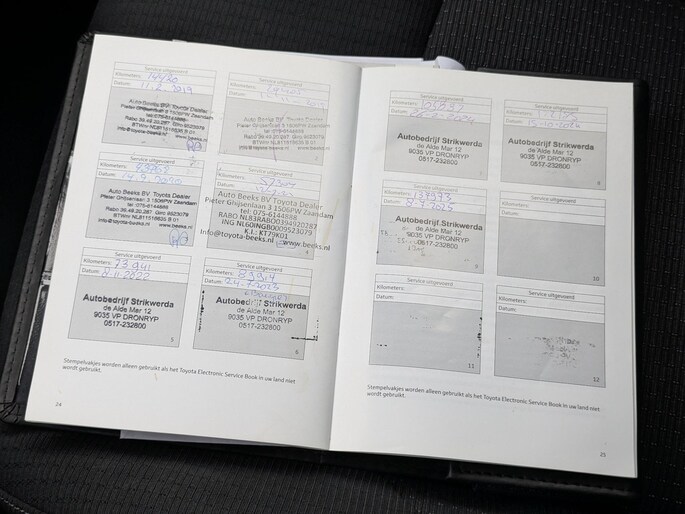 Service uitgevoerd
Kilometers: 14430
Datum: 11.2.2019
Auto Beeks BV Toyota Dealer
Pieter Ghijsenlaan 3 1506PW Zaandam
tel: 075-6144888
Rabo 39.49.20.287 Giro 9523079
BTWnr NL811518835 B 01
info@toyota-beeks.nl www.beeks.nl
Service uitgevoerd
Kilometers:
Datum:
Service uitgevoerd
Kilometers:
Datum:
Auto Beeks BV Toyota Dealer
Pieter Ghijsenlaan 3 1506PW Zaandam
tel: 075-6144888
Rabo 39.49.20.287 Giro 9523079
BTWnr NL811518835 B 01
info@toyota-beeks.nl www.beeks.nl
Service uitgevoerd
Auto Beeks BV Toyota Dealer
Pieter Ghijsenlaan 3 1506PW Zaandam
tel: 075-6144888
RABO NL83RABO0394920287
ING NL60INGB0009523079
K.I.: KT79K01
Info@toyota-beeks.nl www.beeks.nl
4
Service uitgevoerd
Kilometers: 73941
Datum: 8-11-2022
Autobedrijf Strikwerda
de Alde Mar 12
9035 VP DRONRYP
0517-232800
5
Service uitgevoerd
Kilometers: 89914
Datum: 24-7-2023
Autobedrijf Strikwerda
de Alde Mar 12
9035 VP DRONRYP
0517-232800
6
Stempelvakjes worden alleen gebruikt als het Toyota Electronic Service Book in uw land niet
wordt gebruikt.
24
Service uitgevoerd
Kilometers:
Datum:
Autobedrijf Strikwerda
de Alde Mar 12
9035 VP DRONRYP
0517-232800
7
Service uitgevoerd
Kilometers:
Datum: 15-10-2024
Autobedrijf Strikwerda
de Alde Mar 12
9035 VP DRONRYP
0517-232800
8
Service uitgevoerd
Kilometers:
Datum:
Autobedrijf Strikwerda
de Alde Mar 12
9035 VP DRONRYP
0517-232800
9
Service uitgevoerd
Kilometers:
Datum:
10
Service uitgevoerd
Kilometers:
Datum:
11
Service uitgevoerd
Kilometers:
Datum:
12
Stempelvakjes worden alleen gebruikt als het Toyota Electronic Service Book in uw land niet
wordt gebruikt.
25